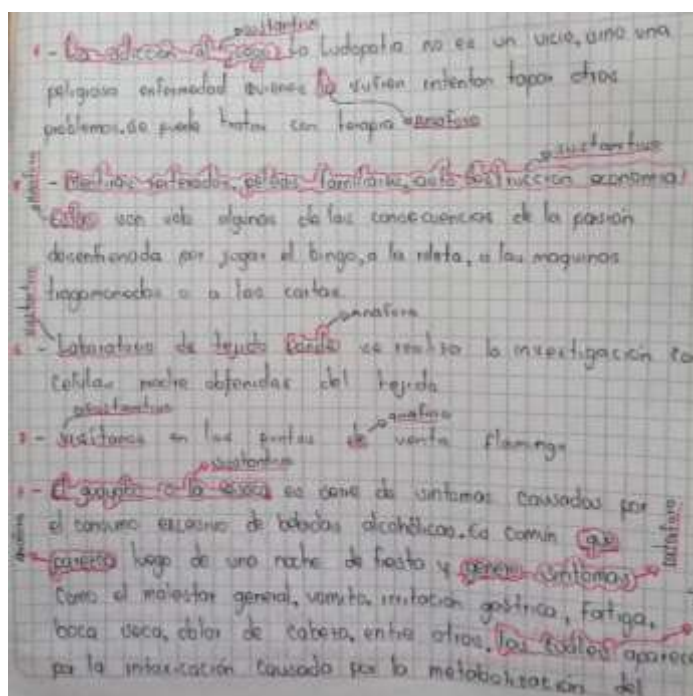 sustantivo
- La adicción al juego o ludopatia no es un vicio, sino una
peligrosa enfermedad quienes la sufren intentan tapar otros
problemas. se puede tratar con terapia anafora
sustantivo
- Mentiras reiteradas, peleas familiares, auto destrucción economica/
Estas son solo algunas de las consecuencias de la pasión
desenfrenada por jugar al bingo, a la ruleta, a las maquinas
tragamonedas o a las cartas.
sustantivo
anafora
- Laboratorio de tejido donde se realiza la investigación
celulas madre obtenidas del tejido
sustantivo
anafora
- visitanos en los puntos de venta flamingo
sustantivo
- El guayabo o la resaca es serie de sintomas causados por
el consumo excesivo de bebidas alcohólicas. Es común que
luego de una noche de fiesta y genera sintomas
como el malestar general, vomito, irritación gástrica, fatiga,
boca seca, dolor de cabeza, entre otros. los cuales aparece
por la intoxicación causada por la metabolización del